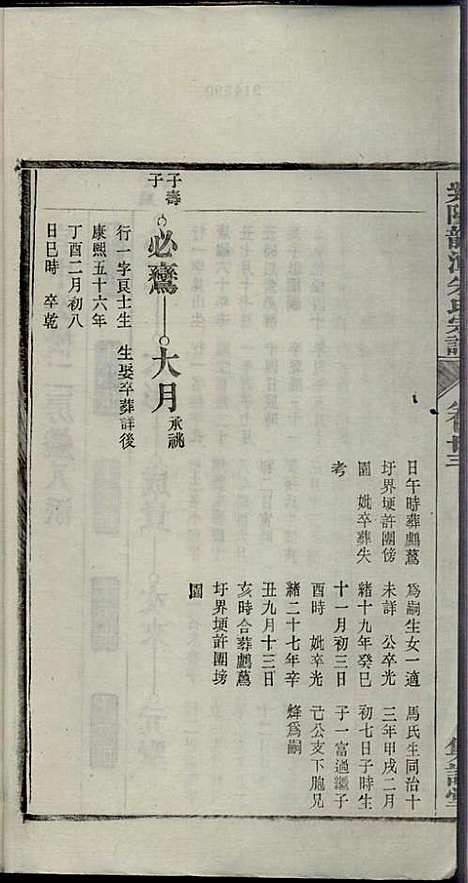 卷廿三
日午時葬鸕鶿
圩界埂許團傍
園 妣卒葬失
考
爲嗣生女一適
未詳 公卒光
緒十九年癸巳
十一月初三日
酉時 妣卒光
緒二十七年辛
丑九月十三日
亥時合葬鸕鶿
圩界埂許團塝
園
馬氏生同治十
三年甲戌二月
初七日子時生
子一富過繼子
己公支下胞兄
烽爲嗣
子壽
子
必鸞
大月
承祧
行一字良士生
康熙五十六年
丁酉二月初八
日巳時 卒乾
生娶卒葬詳後